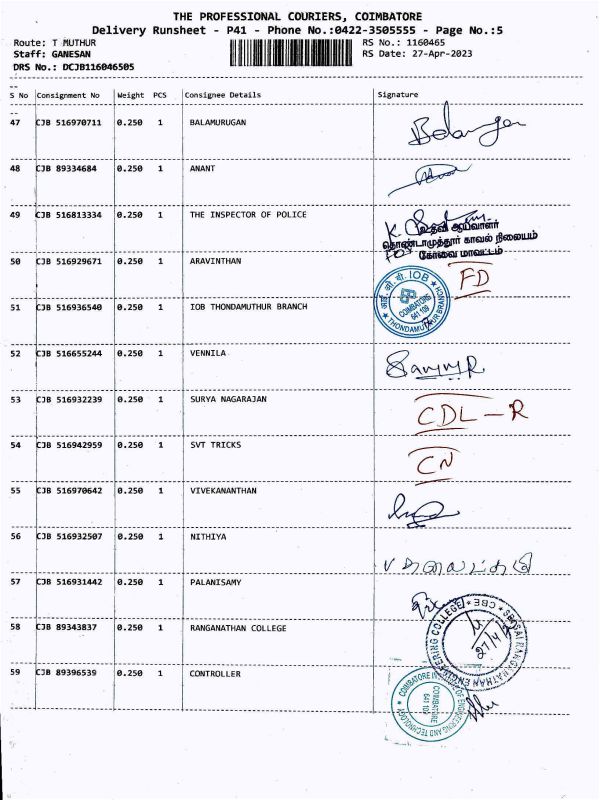 THE PROFESSIONAL COURIERS, COIMBATORE
Delivery Runsheet - P41 - Phone No.:0422-3505555 - Page No.:5
Route: T MUTHUR RS No.: 1160465
Staff: GANESAN RS Date: 27-Apr-2023
DRS No.: DCJB116046505
--
S No Consignment No Weight PCS Consignee Details Signature
--
47 CJB 516970711 0.250 1 BALAMURUGAN
48 CJB 89334684 0.250 1 ANANT
49 CJB 516813334 0.250 1 THE INSPECTOR OF POLICE
உதவி ஆய்வாளர்
தொண்டாமுத்தூர் காவல் நிலையம்
கோவை மாவட்டம்
50 CJB 516929671 0.250 1 ARAVINTHAN FD
51 CJB 516936540 0.250 1 IOB THONDAMUTHUR BRANCH
IOB
COIMBATORE
641 109
THONDAMUTHUR BRANCH
52 CJB 516655244 0.250 1 VENNILA
53 CJB 516932239 0.250 1 SURYA NAGARAJAN CDL - R
54 CJB 516942959 0.250 1 SVT TRICKS CN
55 CJB 516970642 0.250 1 VIVEKANANTHAN
56 CJB 516932507 0.250 1 NITHIYA
57 CJB 516931442 0.250 1 PALANISAMY
58 CJB 89343837 0.250 1 RANGANATHAN COLLEGE
59 CJB 89396539 0.250 1 CONTROLLER
COIMBATORE INSTITUTE OF ENGINEERING AND TECHNOLOGY
COIMBATORE
641 109